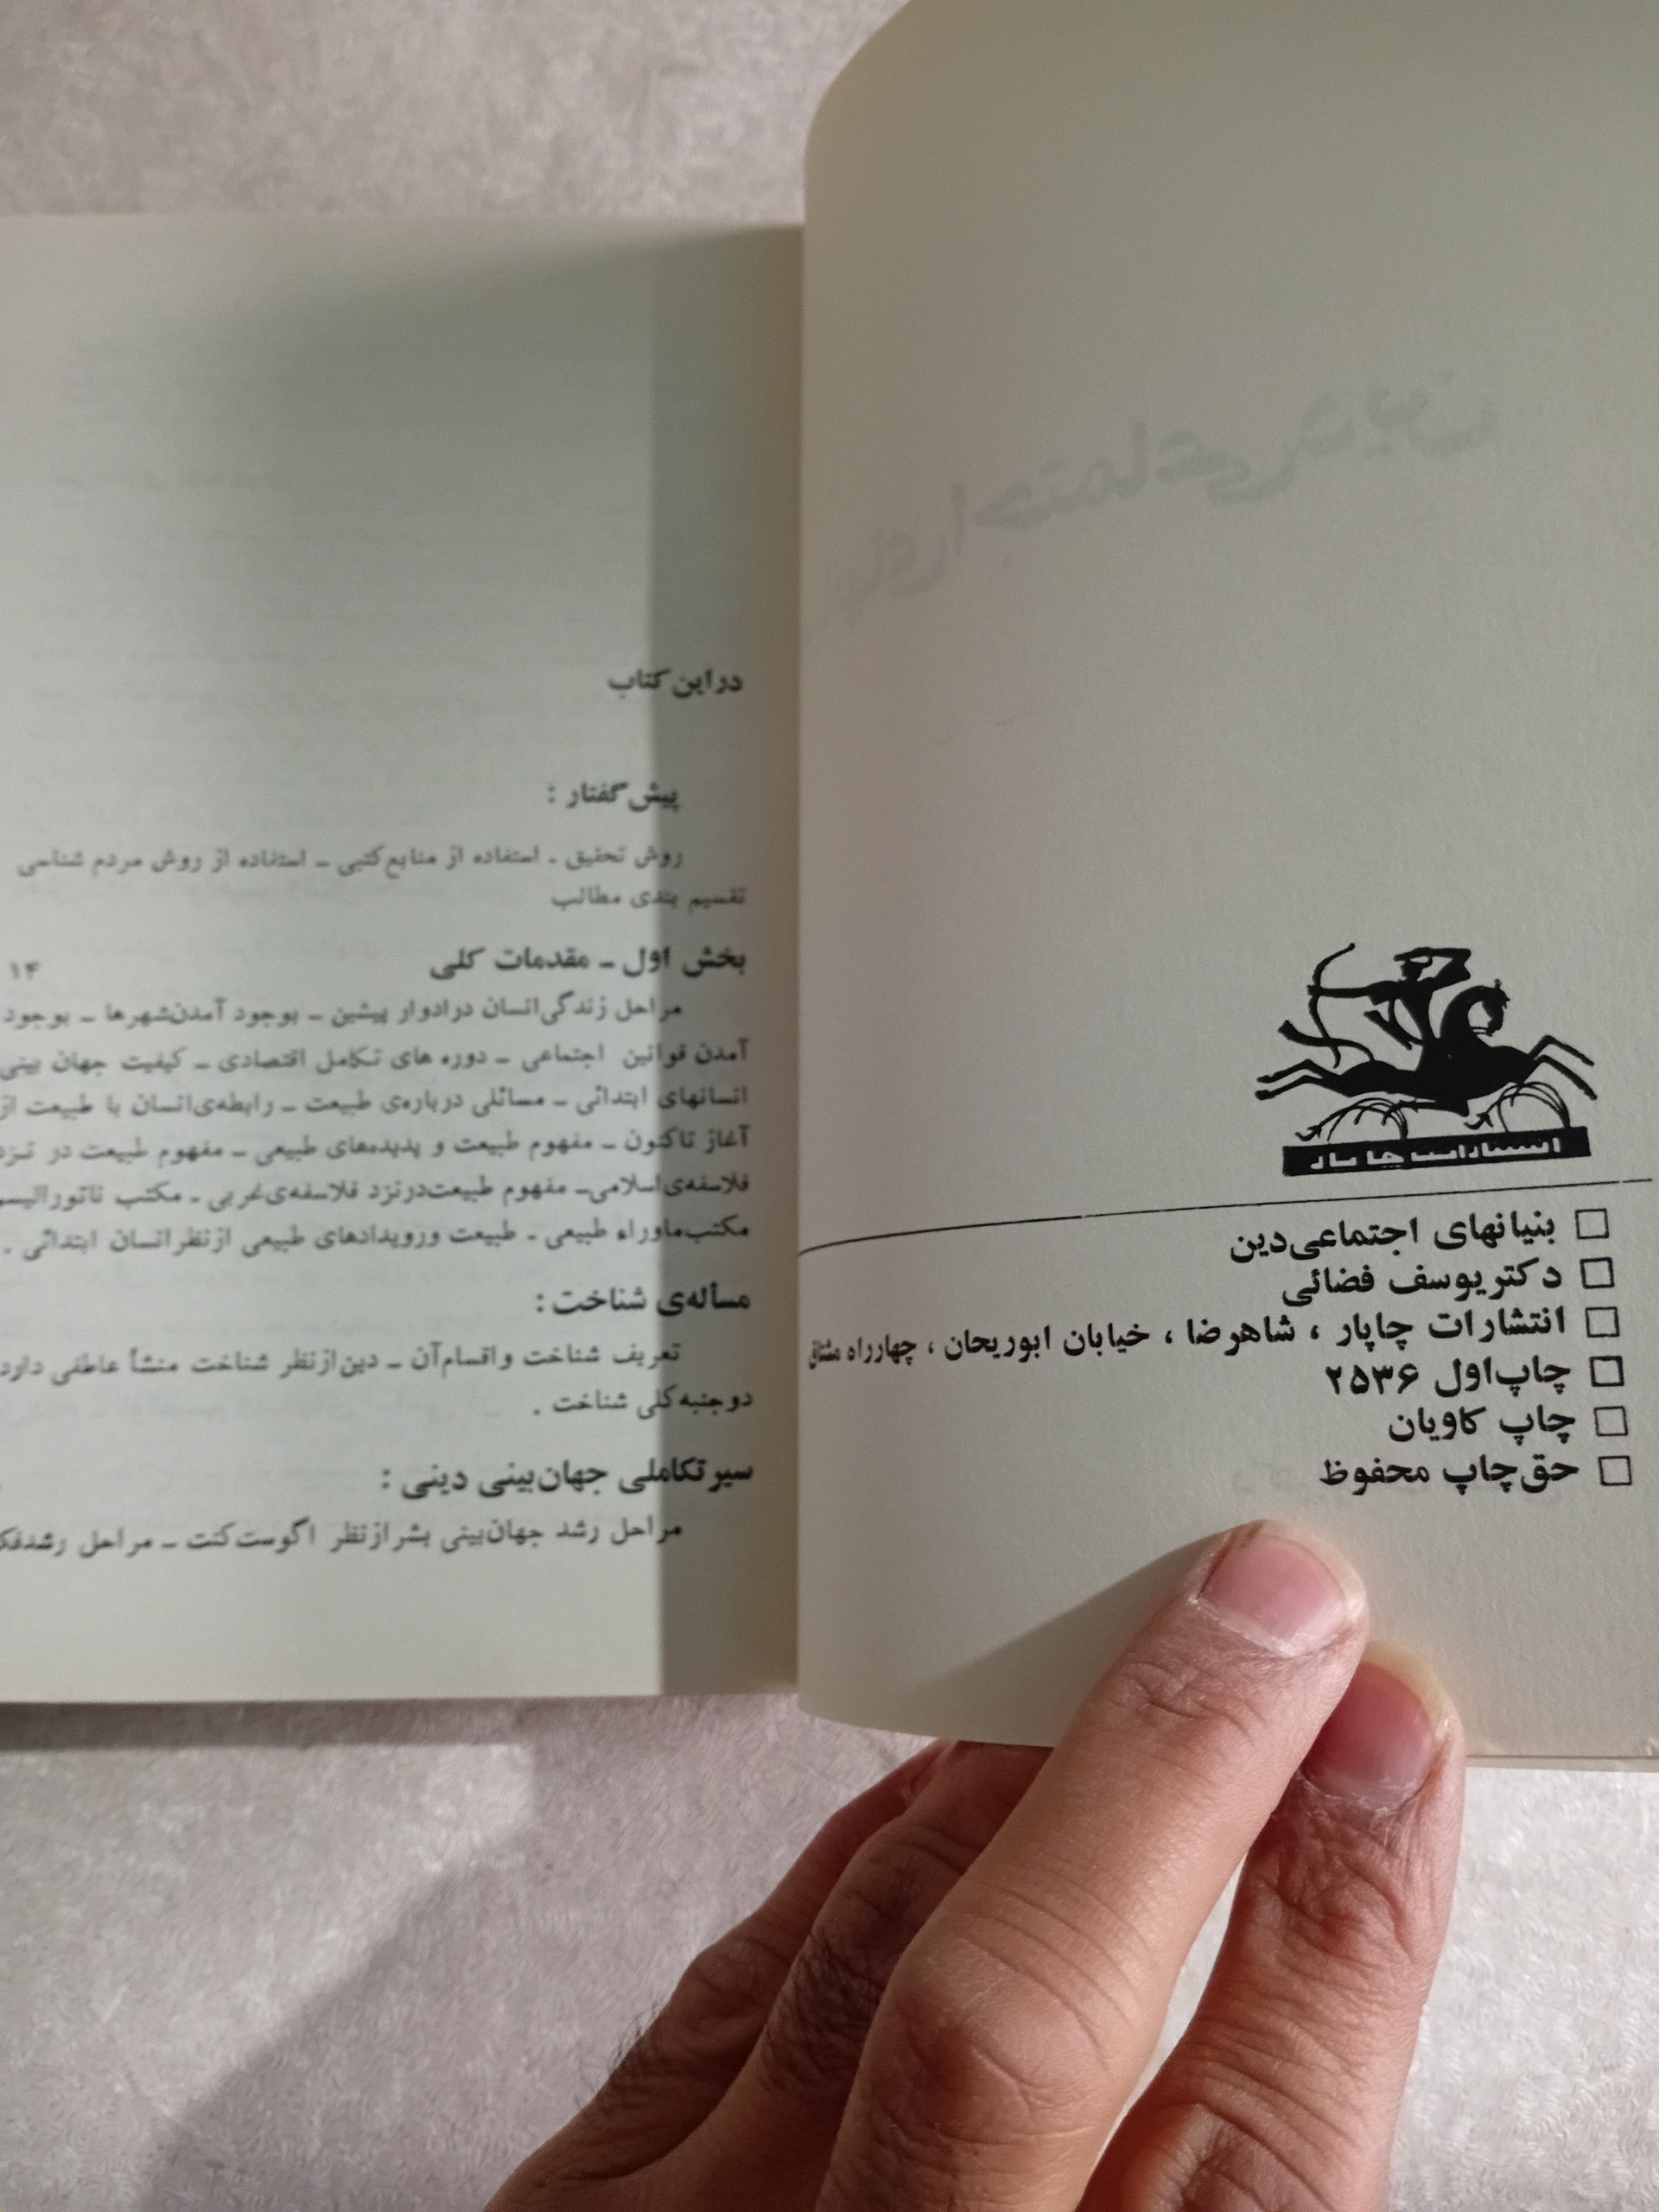 انتشارات چاپار
بنیانهای اجتماعی‌دین
دکتریوسف فضائی
انتشارات چاپار ، شاهرضا ، خیابان ابوریحان ، چهارراه مشتاق
چاپ‌اول ۲۵۳۶
چاپ کاویان
حق‌چاپ محفوظ
دراین‌کتاب
پیش‌گفتار :
روش تحقیق ـ استفاده از منابع‌کتبی ـ استفاده از روش مردم شناسی
تقسیم بندی مطالب
بخش اول ـ مقدمات کلی ۱۴
مراحل زندگی‌انسان درادوار پیشین ـ بوجود آمدن‌شهرها ـ بوجود
آمدن قوانین اجتماعی ـ دوره های تکامل اقتصادی ـ کیفیت جهان بینی
انسانهای ابتدائی ـ مسائلی درباره‌ی طبیعت ـ رابطه‌ی‌انسان با طبیعت از
آغاز تاکنون ـ مفهوم طبیعت و پدیده‌های طبیعی ـ مفهوم طبیعت در
فلاسفه‌ی‌اسلامی‌ـ مفهوم طبیعت‌درنزد فلاسفه‌ی‌غربی ـ مکتب
مکتب‌ماوراء طبیعی ـ طبیعت ورویدادهای طبیعی ازنظرانسان ابتدائی .
مسأله‌ی شناخت :
تعریف شناخت واقسام‌آن ـ دین‌ازنظر شناخت منشأ عاطفی دارد
دوجنبه‌کلی شناخت .
سیرتکاملی جهان‌بینی دینی :
مراحل رشد جهان‌بینی بشرازنظر اگوست‌کنت ـ مراحل